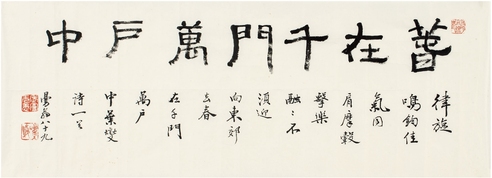 萅在千門萬戶中
律旋
鴻鈞佳
氣同
肩摩轂
擊樂
融〻不
須迎
向東郊
去春
在千門
萬戶
中葉燮
詩一首
曼翁八十九